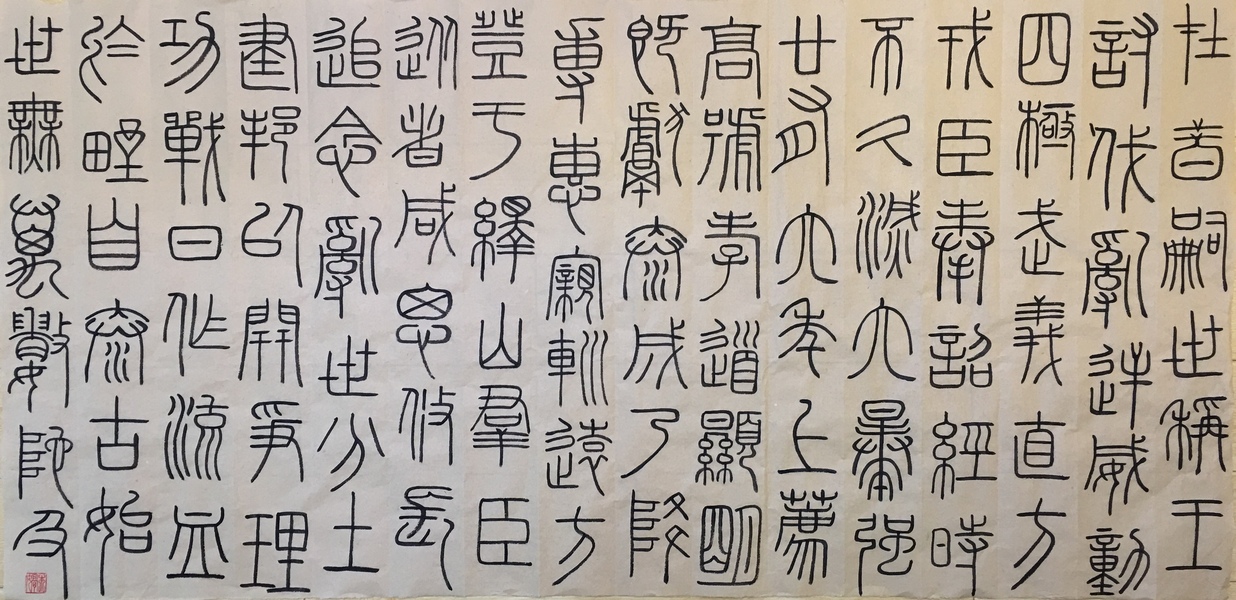 在昔嗣世稱王
討伐亂逆威動
四極武義直方
戎臣奉詔經時
不久滅六暴強
廿有六年上薦
高號孝道顯明
既獻泰成乃降
專惠寴巡遠方
登于繹山群臣
從者咸思攸長
追念亂世分土
建邦以開爭理
功戰日作流血
於野自泰古始
世無萬數陀及